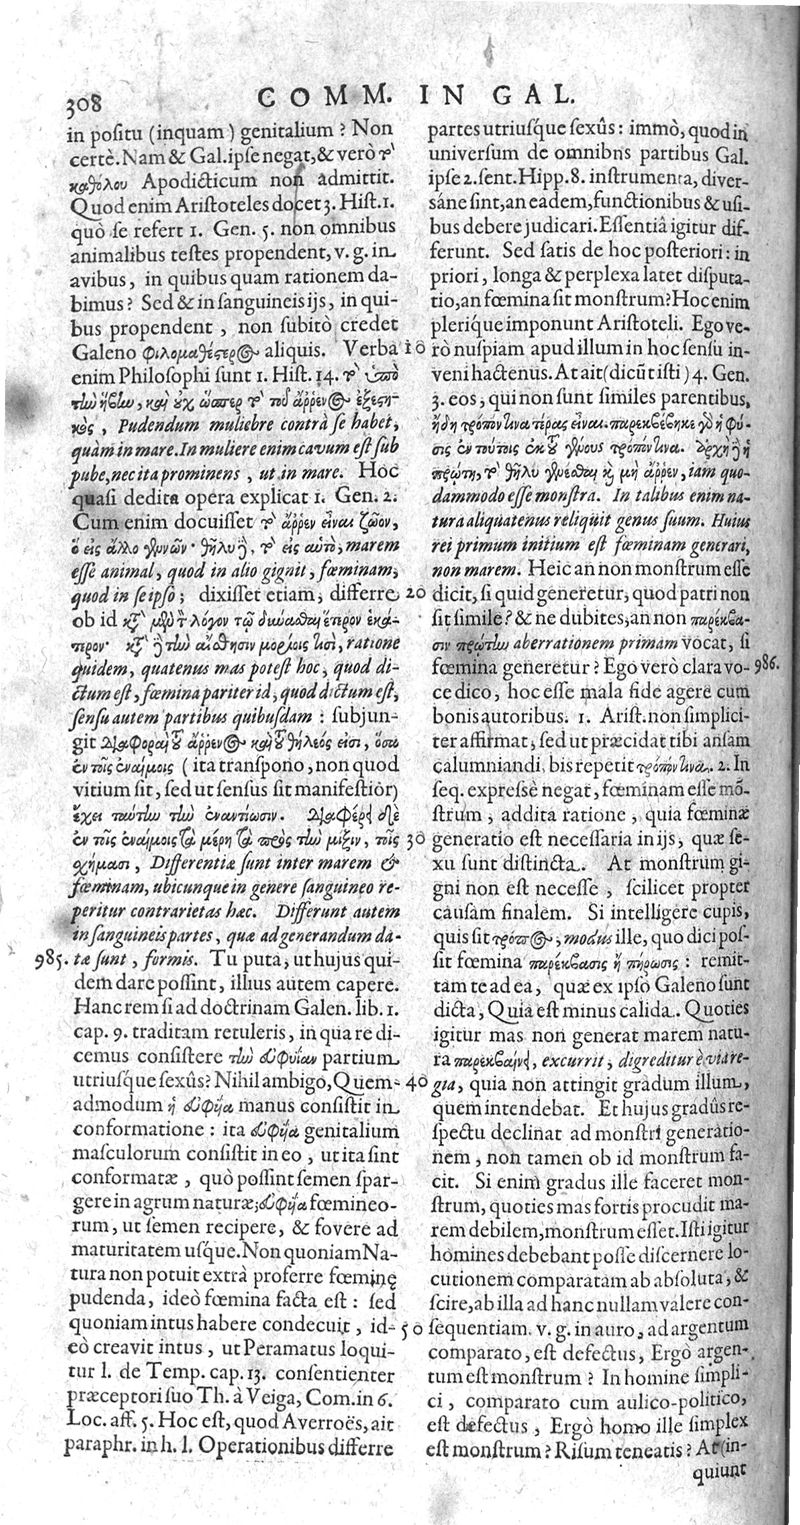 308 COMM. IN GAL.
in positu (inquam) genitalium? Non
certè. Nam & Gal. ipse negat, & verò τὸ
καθόλου Apodicticum non admittit.
Quod enim Aristoteles docet 3. Hist. 1.
quò se refert 1. Gen. 5. non omnibus
animalibus testes propendent, v. g. in
avibus, in quibus quam rationem da-
bimus? Sed & in sanguineis ijs, in qui-
bus propendent, non subitò credet
Galeno φιλομαθέστερος aliquis. Verba 10
enim Philosophi sunt 1. Hist. 14. τὸ ὑπὸ
τὴν ἥβην, καὶ οὐχ ὥσπερ τὸ τοῦ ἄρρενος ἐξεστη-
κὸς, Pudendum muliebre contrà se habet,
quàm in mare. In muliere enim cavum est sub
pube, nec ita prominens, ut in mare. Hoc
quasi dedita opera explicat 1. Gen. 2.
Cum enim docuisset τὸ ἄρρεν εἶναι ζῶον,
ὃ εἰς ἄλλο γεννῶν· θῆλυ δὲ, τὸ εἰς αὑτὸ, marem
esse animal, quod in alio gignit, fœminam,
quod in se ipso; dixisset etiam, differre 20
ob id κατὰ μὲν τὸν λόγον τῷ δύνασθαι ἕτερον ἑκά-
τερον· κατὰ δὲ τὴν αἴσθησιν μορίοις τισὶ, ratione
quidem, quatenus mas potest hoc, quod di-
ctum est, fœmina pariter id, quod dictum est,
sensu autem partibus quibusdam: subjun-
git Διαφοραὶ τοῦ ἄρρενος καὶ τοῦ θήλεός εἰσι, ὅσα
ἐν τοῖς ἐναίμοις (ita transpono, non quod
vitium sit, sed ut sensus sit manifestiòr)
ἔχει ταύτην τὴν ἐναντίωσιν. Διαφέρει δὲ
ἐν τοῖς ἐναίμοις τὰ μέρη τὰ πρὸς τὴν μίξιν, τοῖς 30
σχήμασι, Differentiæ sunt inter marem &
fœminam, ubicunque in genere sanguineo re-
peritur contrarietas hæc. Differunt autem
in sanguineis partes, quæ ad generandum da-
985. tæ sunt, formis. Tu puta, ut hujus qui-
dem dare possint, illius autem capere.
Hanc rem si ad doctrinam Galen. lib. 1.
cap. 9. traditam retuleris, in qua re di-
cemus consistere τὴν εὐφυΐαν partium
utriusque sexûs? Nihil ambigo, Quem- 40
admodum ἡ εὐφυΐα manus consistit in
conformatione: ita εὐφυΐα genitalium
masculorum consistit in eo, ut ita sint
conformatæ, quò possint semen spar-
gere in agrum naturæ; εὐφυΐα fœmineo-
rum, ut semen recipere, & fovere ad
maturitatem usque. Non quoniam Na-
tura non potuit extrà proferre fœminę
pudenda, ideò fœmina facta est: sed
quoniam intus habere condecuit, id- 50
eò creavit intus, ut Peramatus loqui-
tur l. de Temp. cap. 13. consentienter
præceptori suo Th. à Veiga, Com. in 6.
Loc. aff. 5. Hoc est, quod Averroës, ait
paraphr. in h. l. Operationibus differre
partes utriusque sexûs: immò, quod in
universum de omnibns partibus Gal.
ipse 2. sent. Hipp. 8. instrumenta, diver-
sáne sint, an eadem, functionibus & usi-
bus debere judicari. Essentiâ igitur dif-
ferunt. Sed satis de hoc posteriori: in
priori, longa & perplexa latet disputa-
tio, an fœmina sit monstrum? Hoc enim
plerique imponunt Aristoteli. Ego ve-
rò nuspiam apud illum in hoc sensu in-
veni hactenus. At ait (dicũt isti) 4. Gen.
3. eos, qui non sunt similes parentibus,
ἤδη τρόπον τινα τέρας εἶναι. παρεκβέβηκε γὰρ ἡ φύ-
σις ἐν τούτοις ἐκ τοῦ γένους τρόπον τινα. Ἀρχὴ δὲ ἡ
πρώτη, τὸ θῆλυ γενέσθαι καὶ μὴ ἄρρεν, iam quo-
dammodo esse monstra. In talibus enim na-
tura aliquatenus reliquit genus suum. Huius
rei primum initium est fœminam generari,
non marem. Heic an non monstrum esse
dicit, si quid generetur, quod patri non
sit simile? & ne dubites, an non παρέκβα-
σιν πρώτην aberrationem primam vocat, si
fœmina generetur? Ego verò clara vo- 986.
ce dico, hoc esse mala fide agere cum
bonis autoribus. 1. Arist. non simplici-
ter affirmat, sed ut præcidat tibi ansam
calumniandi, bis repetit τρόπον τινα. 2. In
seq. expressè negat, fœminam esse mõ-
strum, addita ratione, quia fœminæ
generatio est necessaria in ijs, quæ se-
xu sunt distincta. At monstrum gi-
gni non est necesse, scilicet propter
causam finalem. Si intelligere cupis,
quis sit τρόπος, modus ille, quo dici pos-
sit fœmina παρέκβασις ἢ πήρωσις: remit-
tam te ad ea, quæ ex ipso Galeno sunt
dicta, Quia est minus calida. Quoties
igitur mas non generat marem natu-
ra παρεκβαίνει, excurrit, digreditur è via re-
gia, quia non attingit gradum illum,
quem intendebat. Et hujus gradûs re-
spectu declinat ad monstri generatio-
nem, non tamen ob id monstrum fa-
cit. Si enim gradus ille faceret mon-
strum, quoties mas fortis procudit ma-
rem debilem, monstrum esset. Isti igitur
homines debebant posse discernere lo-
cutionem comparatam ab absoluta, &
scire, ab illa ad hanc nullam valere con-
sequentiam. v. g. in auro, ad argentum
comparato, est defectus, Ergò argen-
tum est monstrum? In homine simpli-
ci, comparato cum aulico-politico,
est defectus, Ergò homo ille simplex
est monstrum? Risum teneatis? At (in-
quiunt